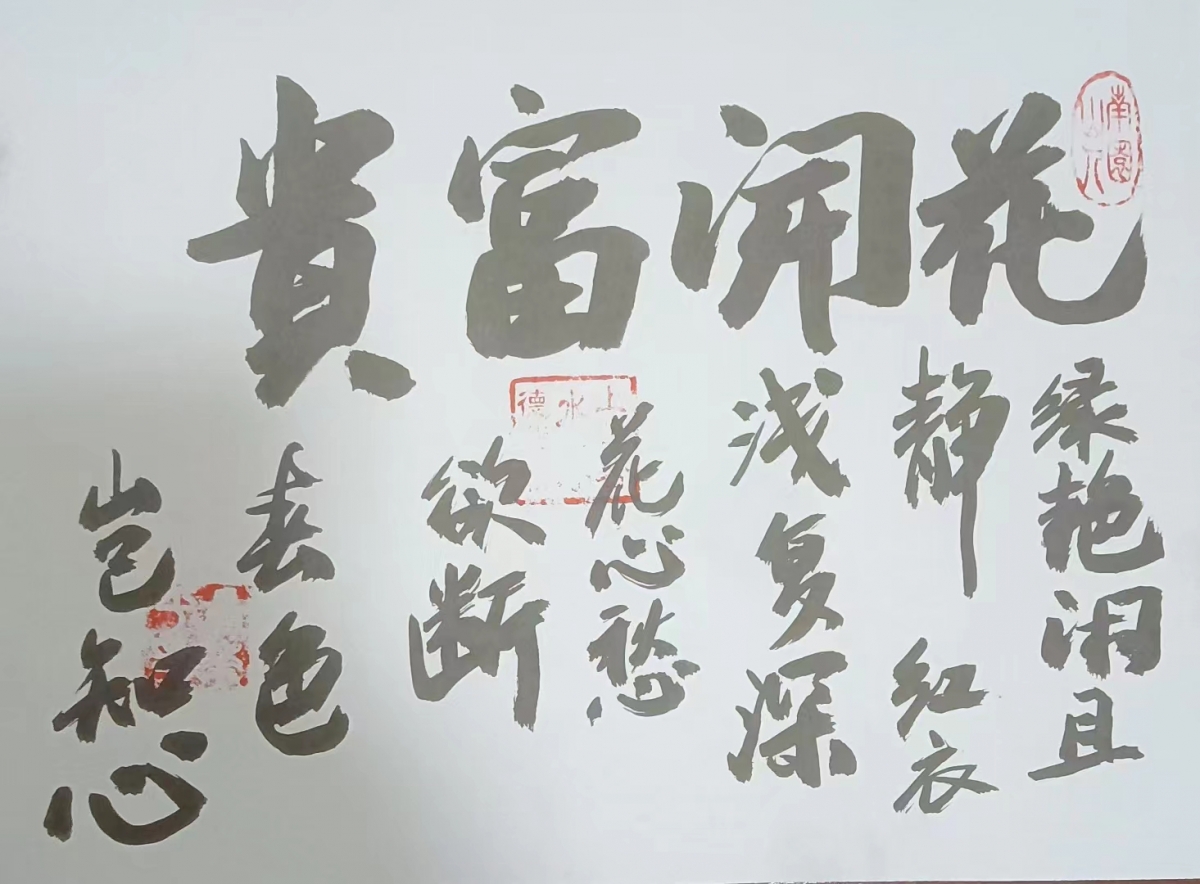 花開富貴
南園
绿艳闲且
静 红衣
浅复深
花心愁
欲断
春色
岂知心
上水德